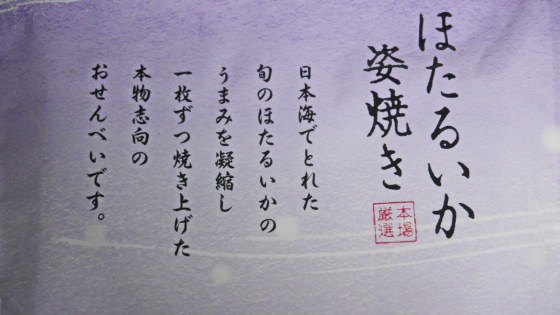 ほたるいか
姿焼き
本場
厳選
日本海でとれた
旬のほたるいかの
うまみを凝縮し
一枚ずつ焼き上げた
本物志向の
おせんべいです。